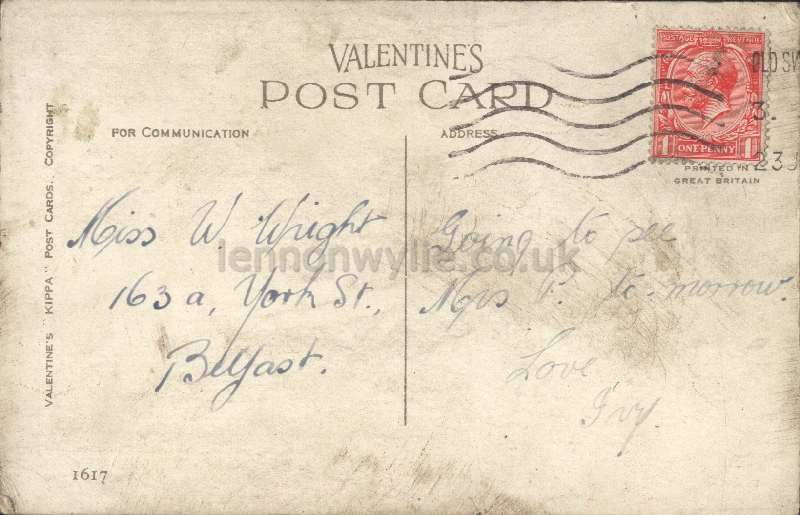 VALENTINE'S
POST CARD
FOR COMMUNICATION
ADDRESS
POSTAGE REVENUE
1D ONE PENNY 1D
OLD SW
3.
23 J
PRINTED IN
GREAT BRITAIN
VALENTINE'S "KIPPA" POST CARDS. COPYRIGHT
Miss W. Wright
163a, York St.,
Belfast.
Going to see
Mrs to-morrow.
Love
Ivy
lennonwylie.co.uk
1617